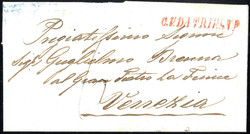 C.F.DA TRIESTE
Pregiatissimo Signore
Sigr Guglielmo Brenna
al Gran Teatro La Fenice
Venezia